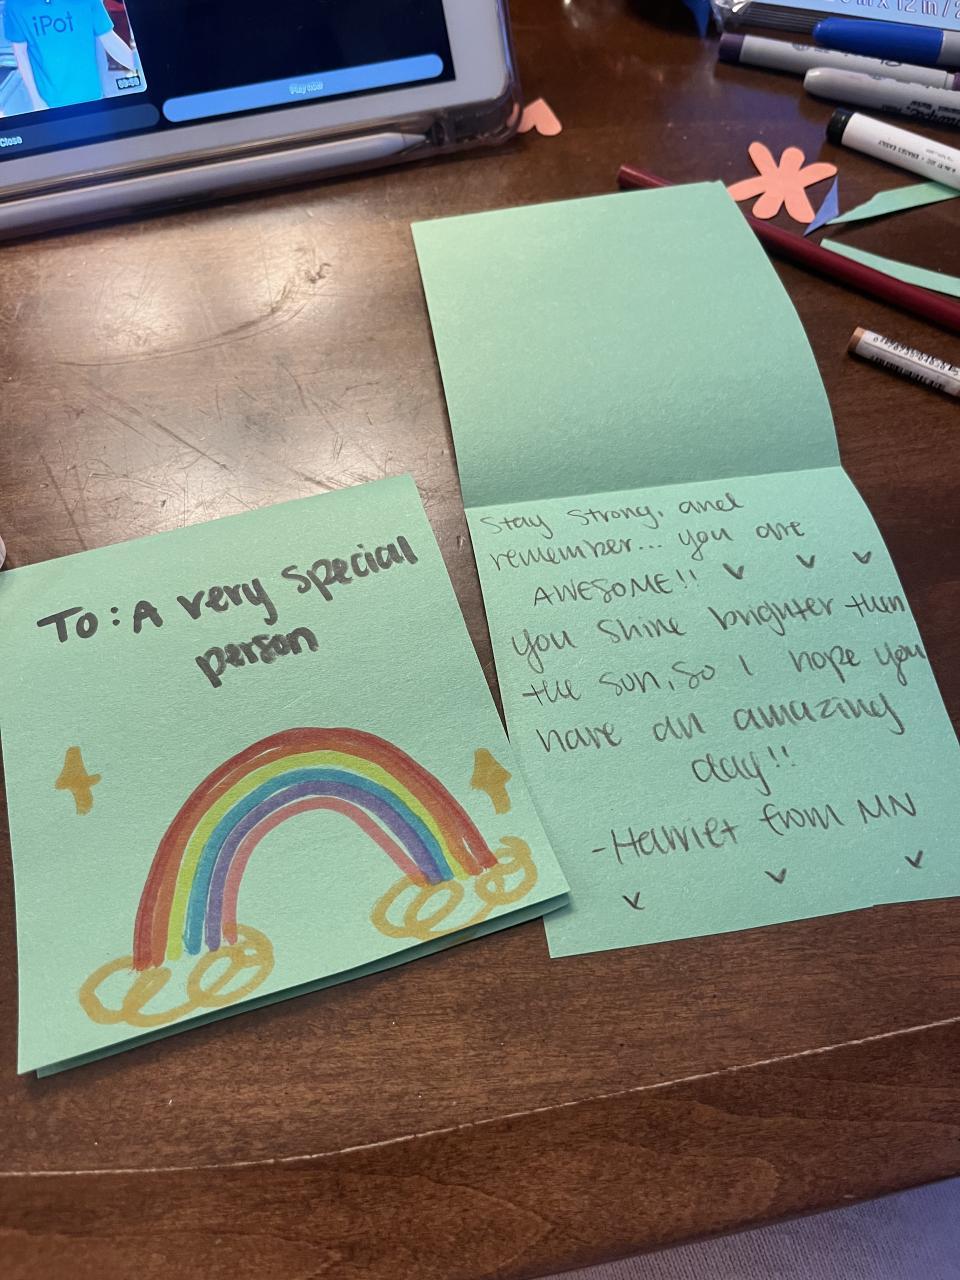 iPot
Close
Play now
To: A very special
person
Stay strong, and
remember... you are
AWESOME!!
you shine brighter then
the sun, so I hope you
have an amazing
day!!
-Harriet from MN